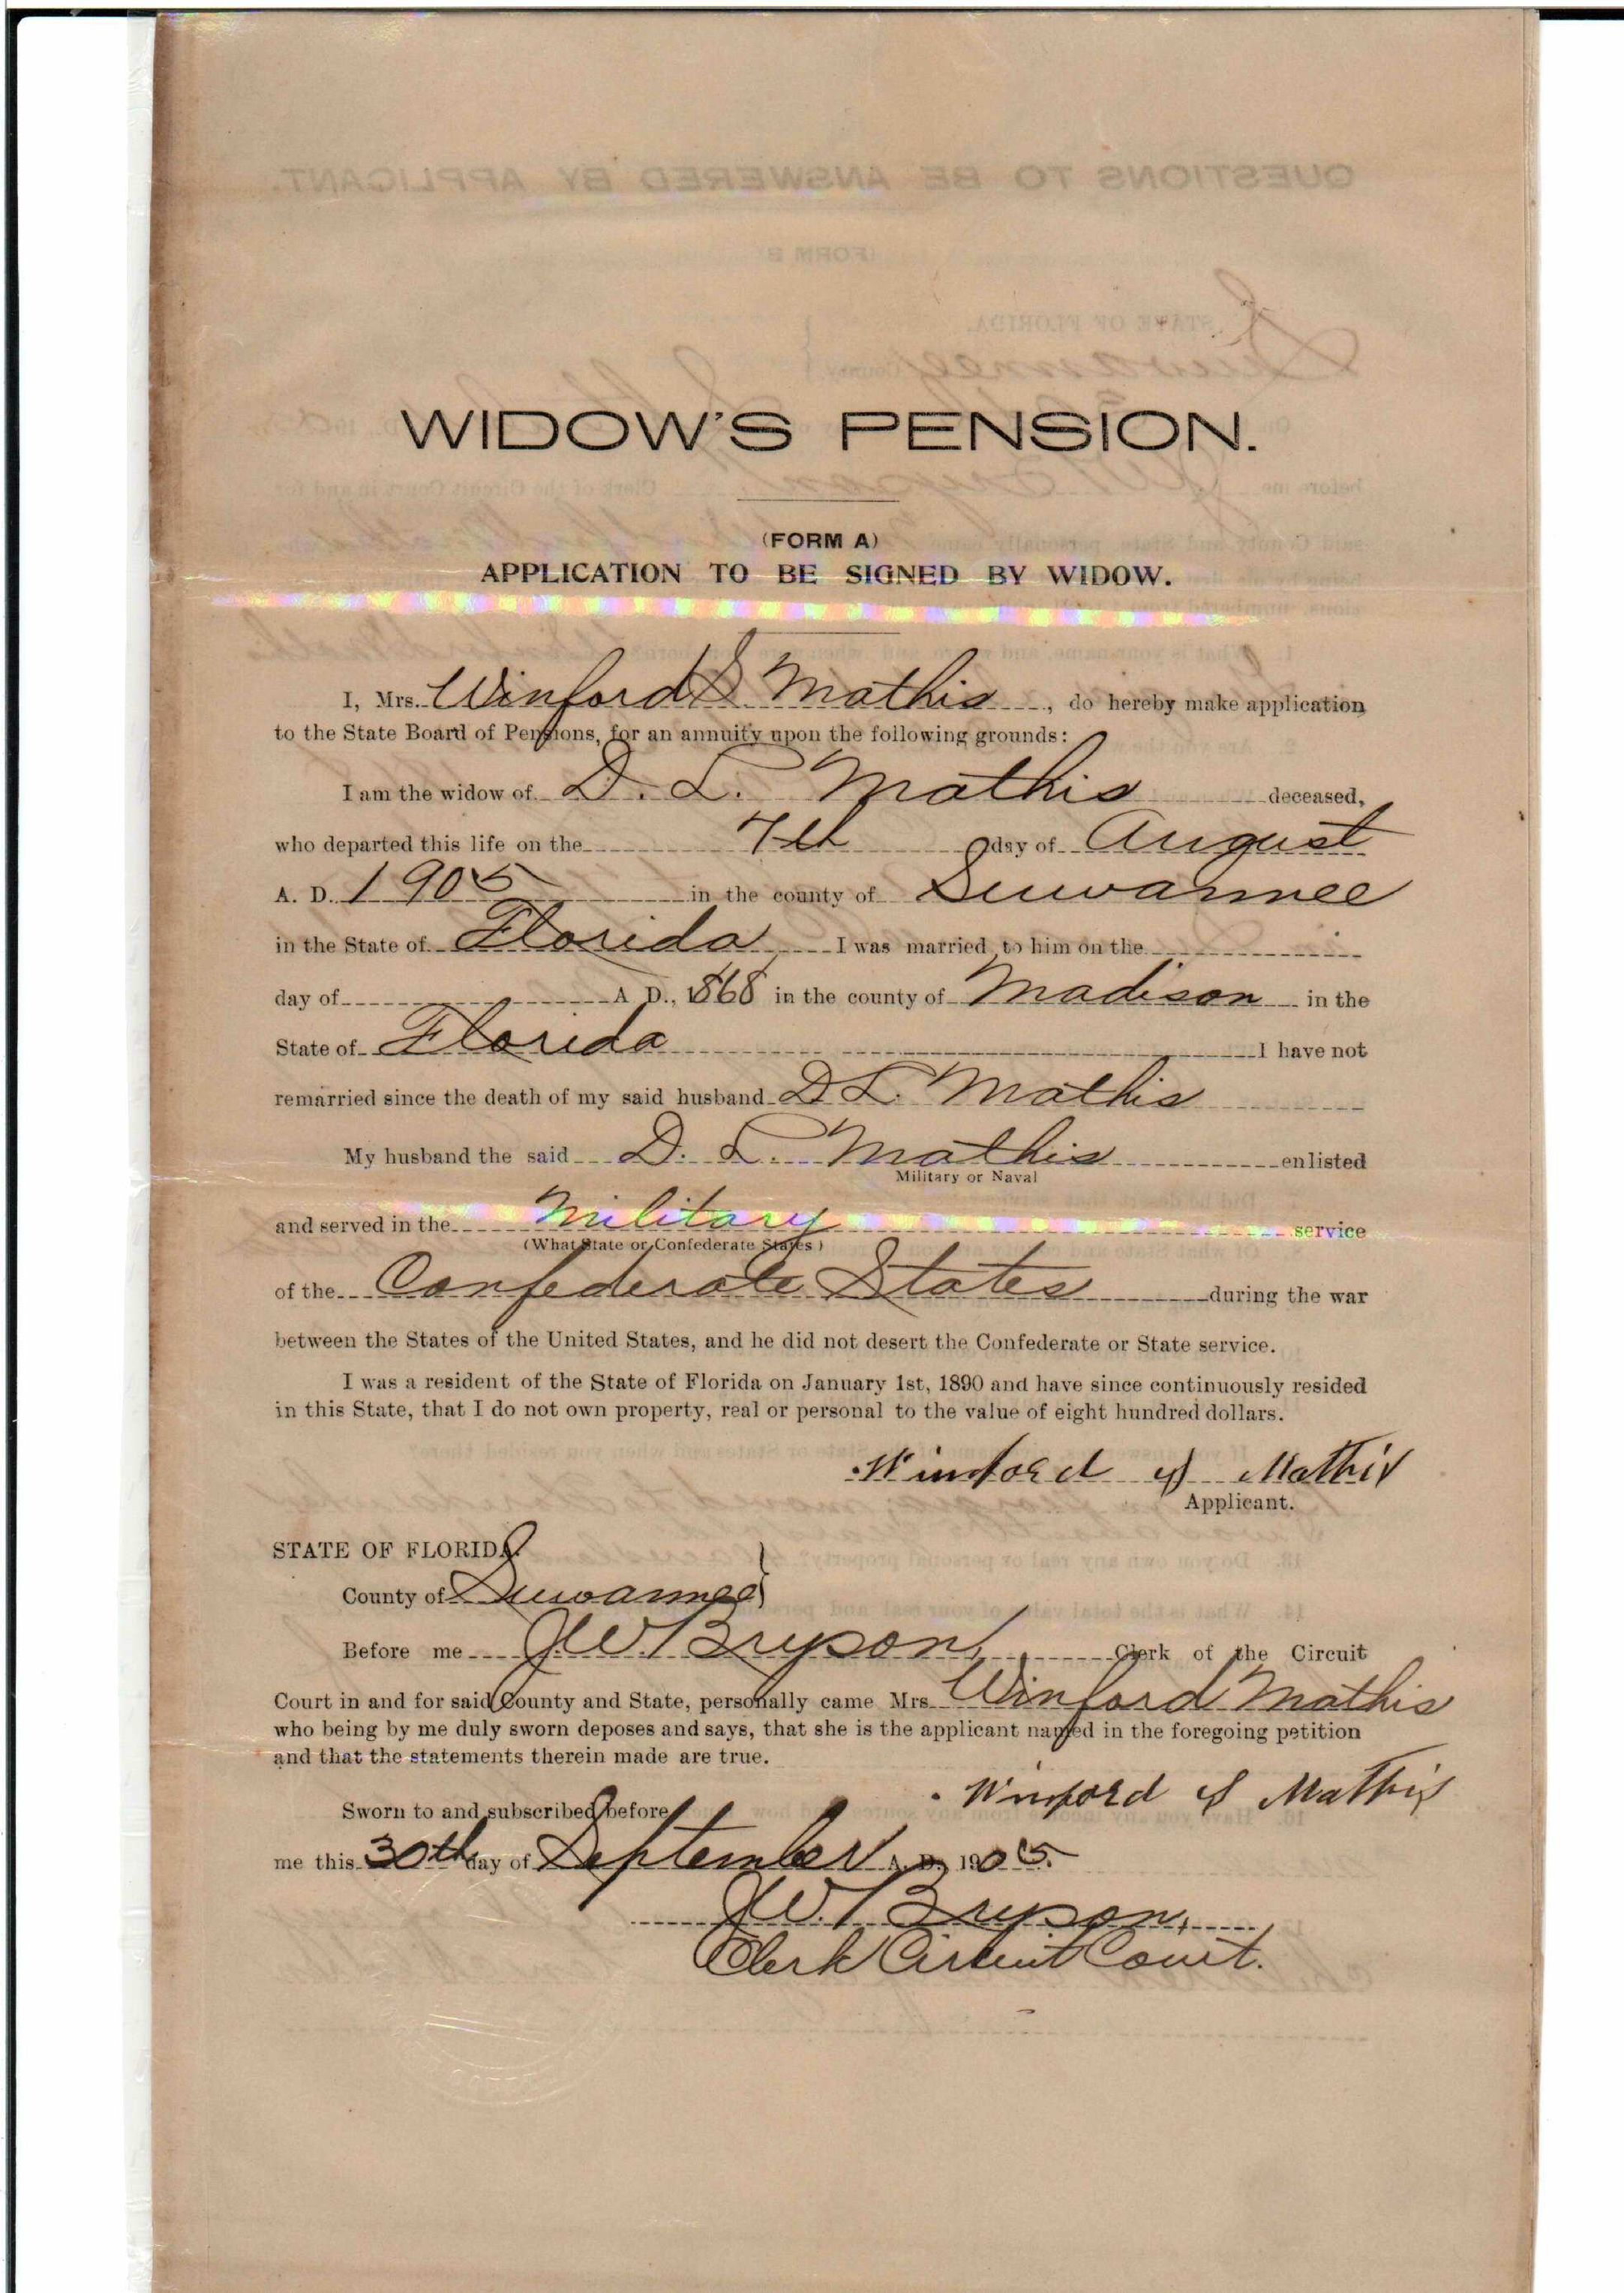 WIDOW'S PENSION.
(FORM A)
APPLICATION TO BE SIGNED BY WIDOW.
I, Mrs. Winford S Mathis, do hereby make application
to the State Board of Pensions, for an annuity upon the following grounds:
I am the widow of D. L. Mathis deceased,
who departed this life on the 7th day of August
A. D. 1905 in the county of Suwannee
in the State of Florida I was married to him on the
day of A D., 1868 in the county of Madison in the
State of Florida I have not
remarried since the death of my said husband D L. Mathis
My husband the said D. L. Mathis enlisted
Military or Naval
and served in the Military service
(What State or Confederate States)
of the Confederate States during the war
between the States of the United States, and he did not desert the Confederate or State service.
I was a resident of the State of Florida on January 1st, 1890 and have since continuously resided
in this State, that I do not own property, real or personal to the value of eight hundred dollars.
Winford S Mathis
Applicant.
STATE OF FLORIDA.
County of Suwannee
Before me J W Bryson, Clerk of the Circuit
Court in and for said County and State, personally came Mrs. Winford Mathis
who being by me duly sworn deposes and says, that she is the applicant named in the foregoing petition
and that the statements therein made are true.
Winford S Mathis
Sworn to and subscribed before
me this 30th day of September A. D. 1905.
J W. Bryson,
Clerk Circuit Court.